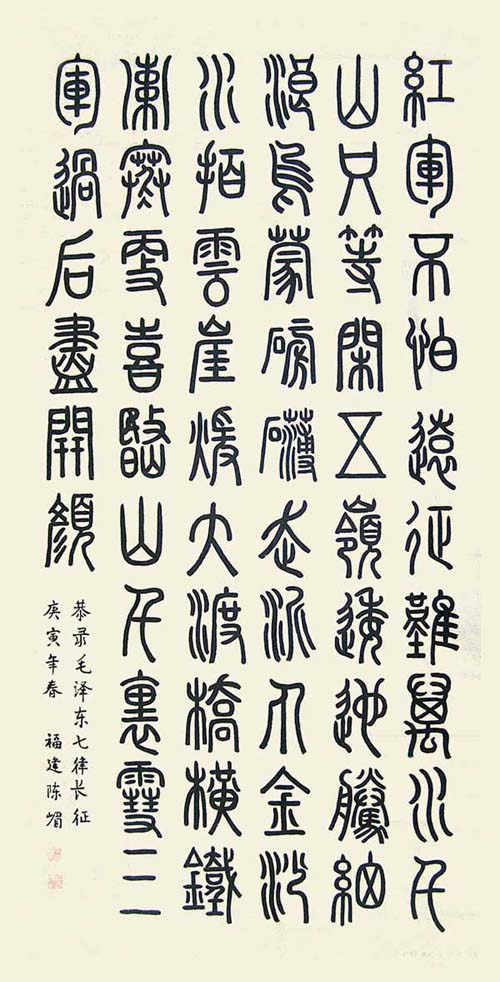 紅軍不怕遠征難萬水千
山只等閑五嶺逶迤騰細
浪烏蒙磅礴走泥丸金沙
水拍雲崖煖大渡橋橫鐵
索寒更喜岷山千裏雪三
軍過后盡開顏
恭录毛泽东七律长征
庚寅年春 福建陈